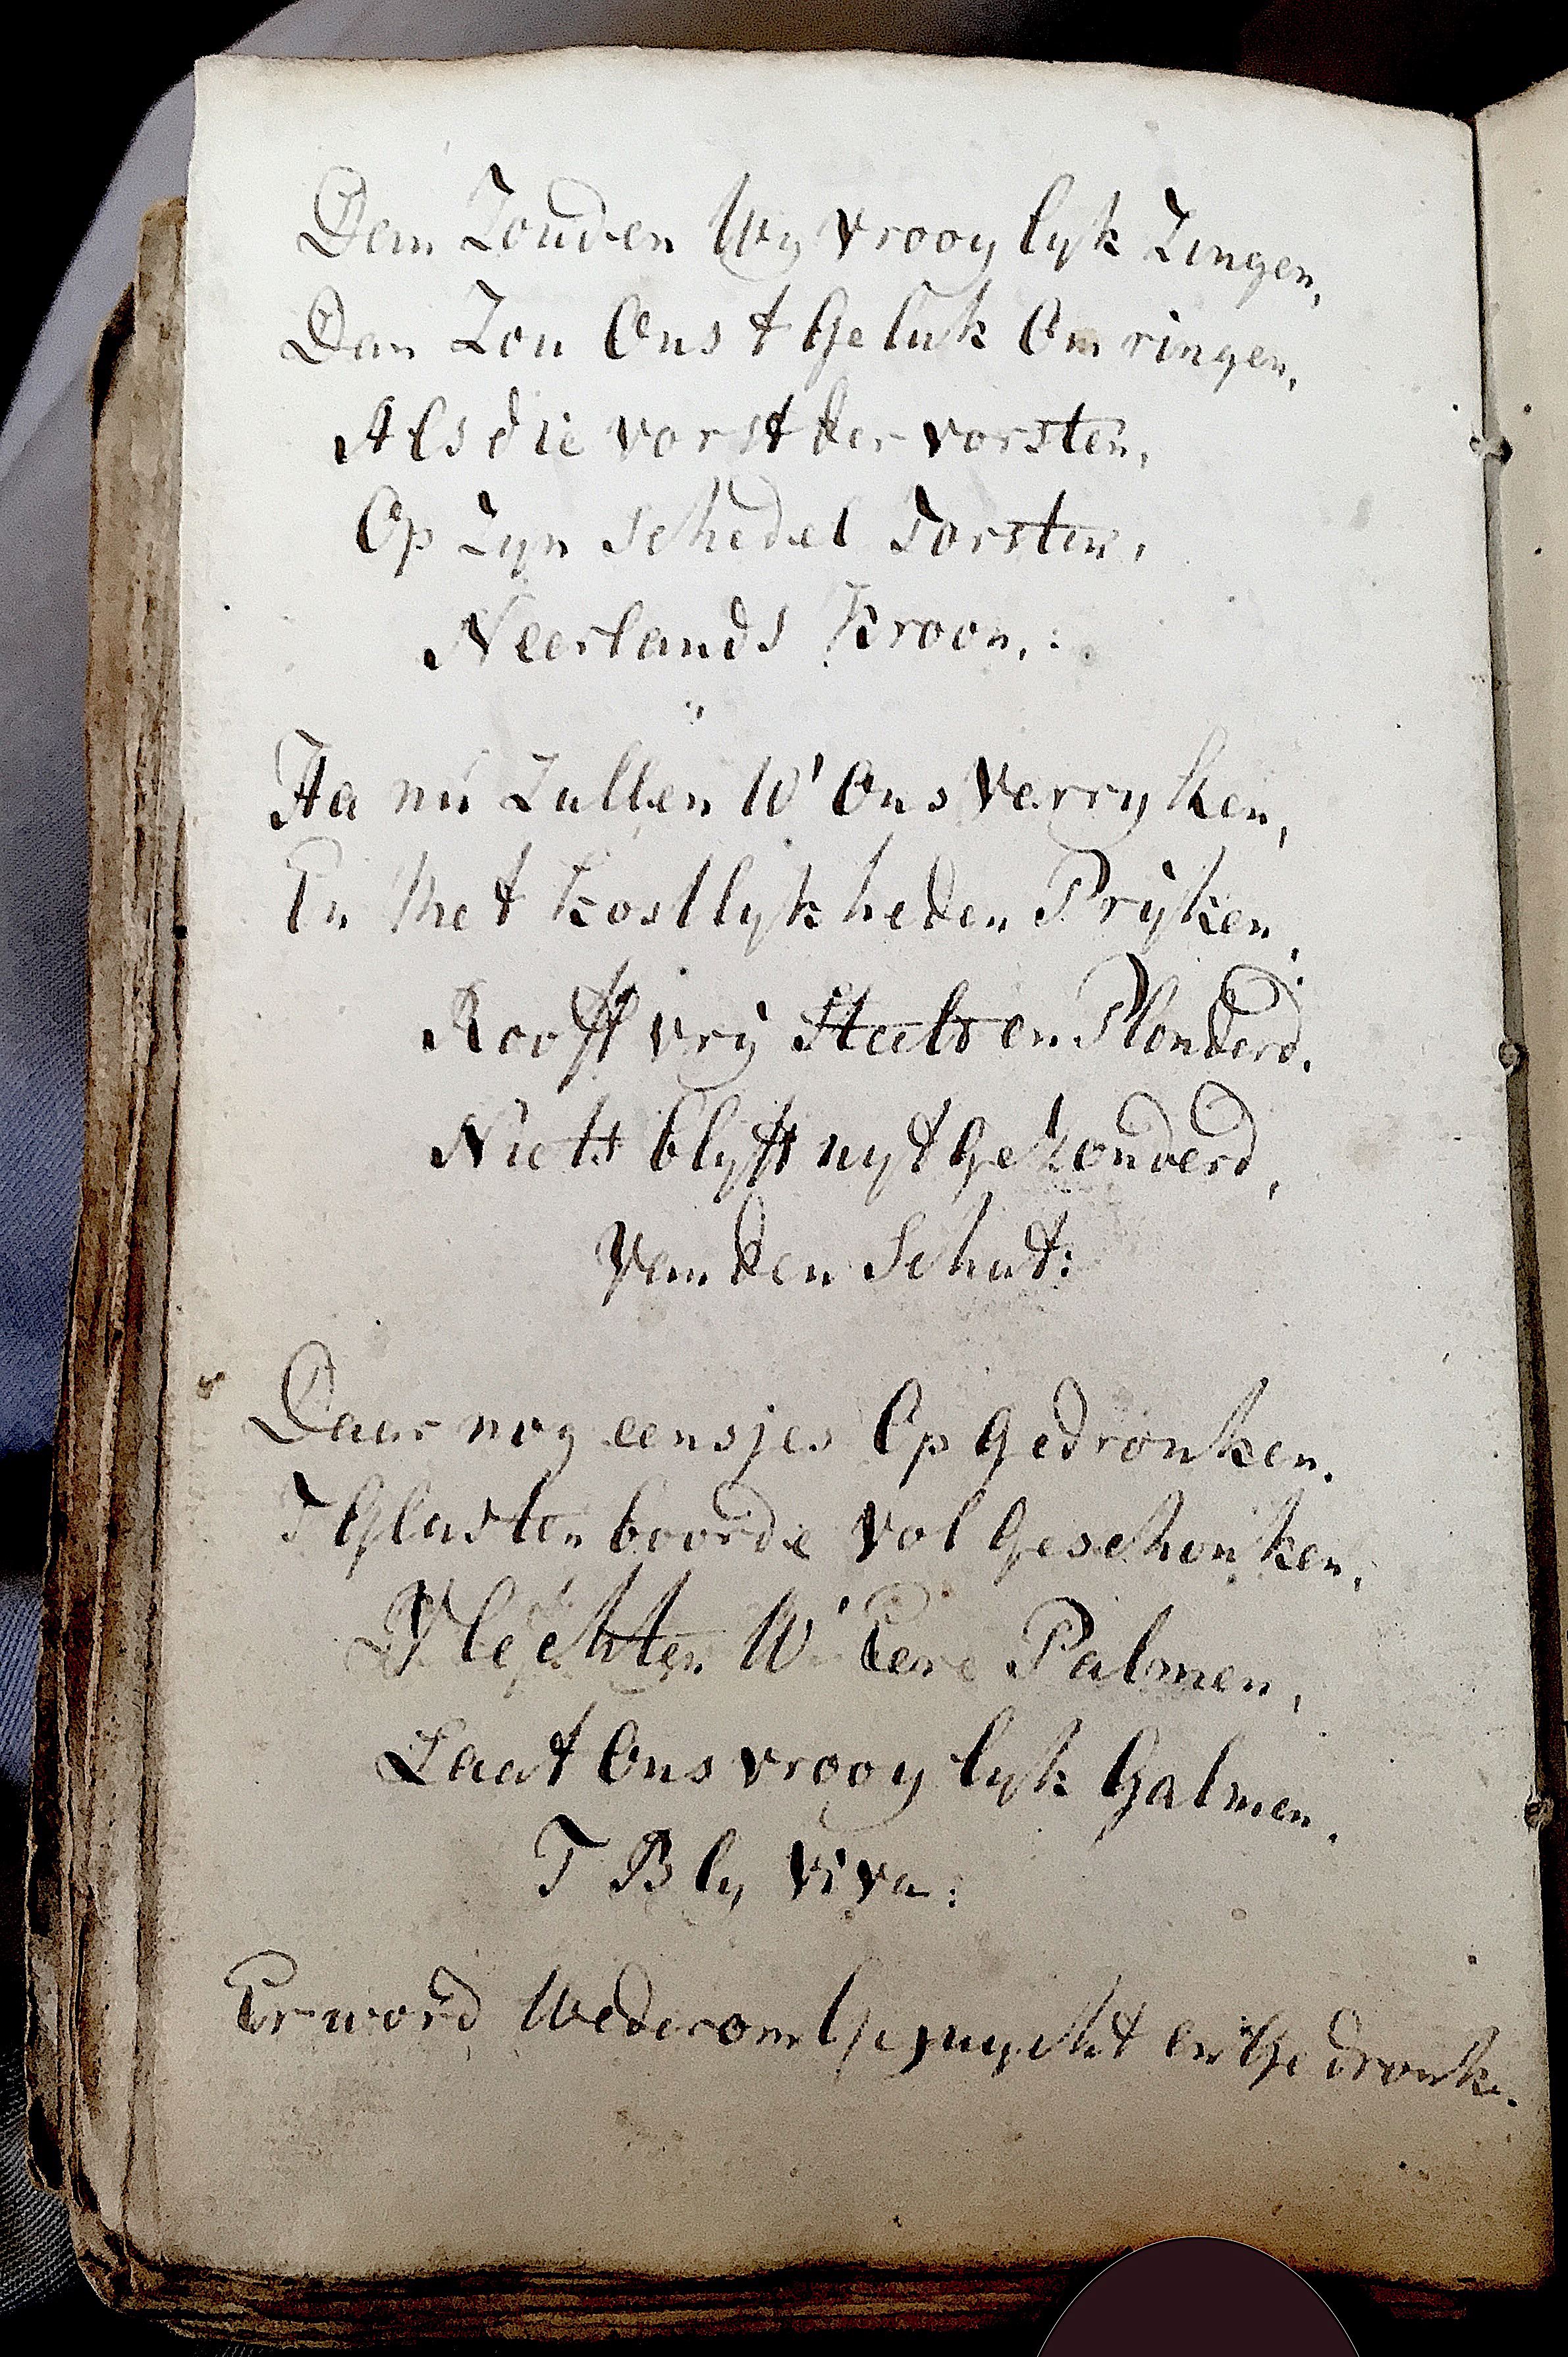 Dan Zouden Wy vrooylyk Zingen,
Dan Zou Ons t Geluk Omringen,
Als die vorst der vorsten,
Op Zyn schedel Torsten,
Neerlands Kroon,:
Ha nú Zullen W' Ons Verryken,
En Met Kostlykheden Pryken,
Rooft vrÿ Steelt en Plonderd,
Niets blyft uyt geZonderd,
Van den Schat:
Daar nog eensjes Op gedronken,
T Glas ten boorde vol geschonken,
Vlechten W' Eere Palmen,
Laat Ons vrooylyk Galmen,
T Bly viva:
Er word Wederom Gejuycht en Gedronke.